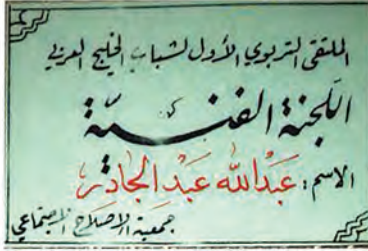 الملتقى التربوي الأول لشباب الخليج العربي
اللجنة الفنية
الاسم: عبدالله عبد الجادر
جمعية الإصلاح الاجتماعي